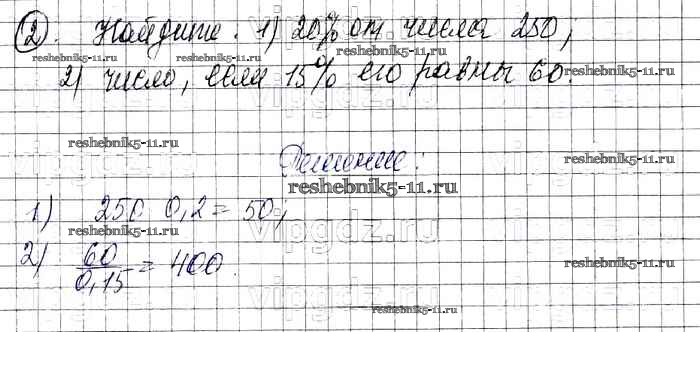 2. Найдите: 1) 20% от числа 250;
reshebnik5-11.ru reshebnik5-11.ru
2) число, если 15% его равны 60.
reshebnik5-11.ru reshebnik5-11.ru
Решение:
reshebnik5-11.ru reshebnik5-11.ru
reshebnik5-11.ru
1) 250 0,2 = 50;
reshebnik5-11.ru
vipgdz.ru
2) 60/0,15 = 400.
reshebnik5-11.ru
vipgdz.ru
reshebnik5-11.ru